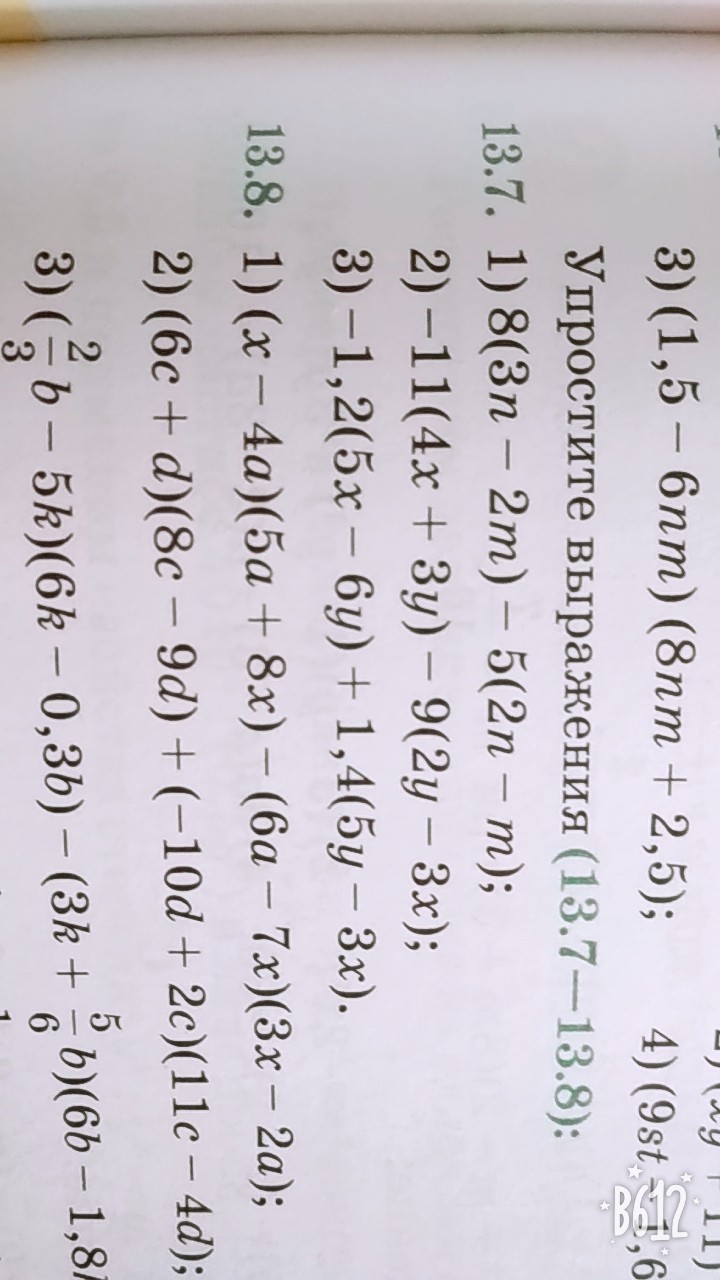 3) (1,5 − 6nm) (8nm + 2,5); 4) (9st − 1,6
Упростите выражения (13.7—13.8):
13.7. 1) 8(3n − 2m) − 5(2n − m);
2) −11(4x + 3y) − 9(2y − 3x);
3) −1,2(5x − 6y) + 1,4(5y − 3x).
13.8. 1) (x − 4a)(5a + 8x) − (6a − 7x)(3x − 2a);
2) (6c + d)(8c − 9d) + (−10d + 2c)(11c − 4d);
3) (2/3 b − 5k)(6k − 0,3b) − (3k + 5/6 b)(6b − 1,8
B612